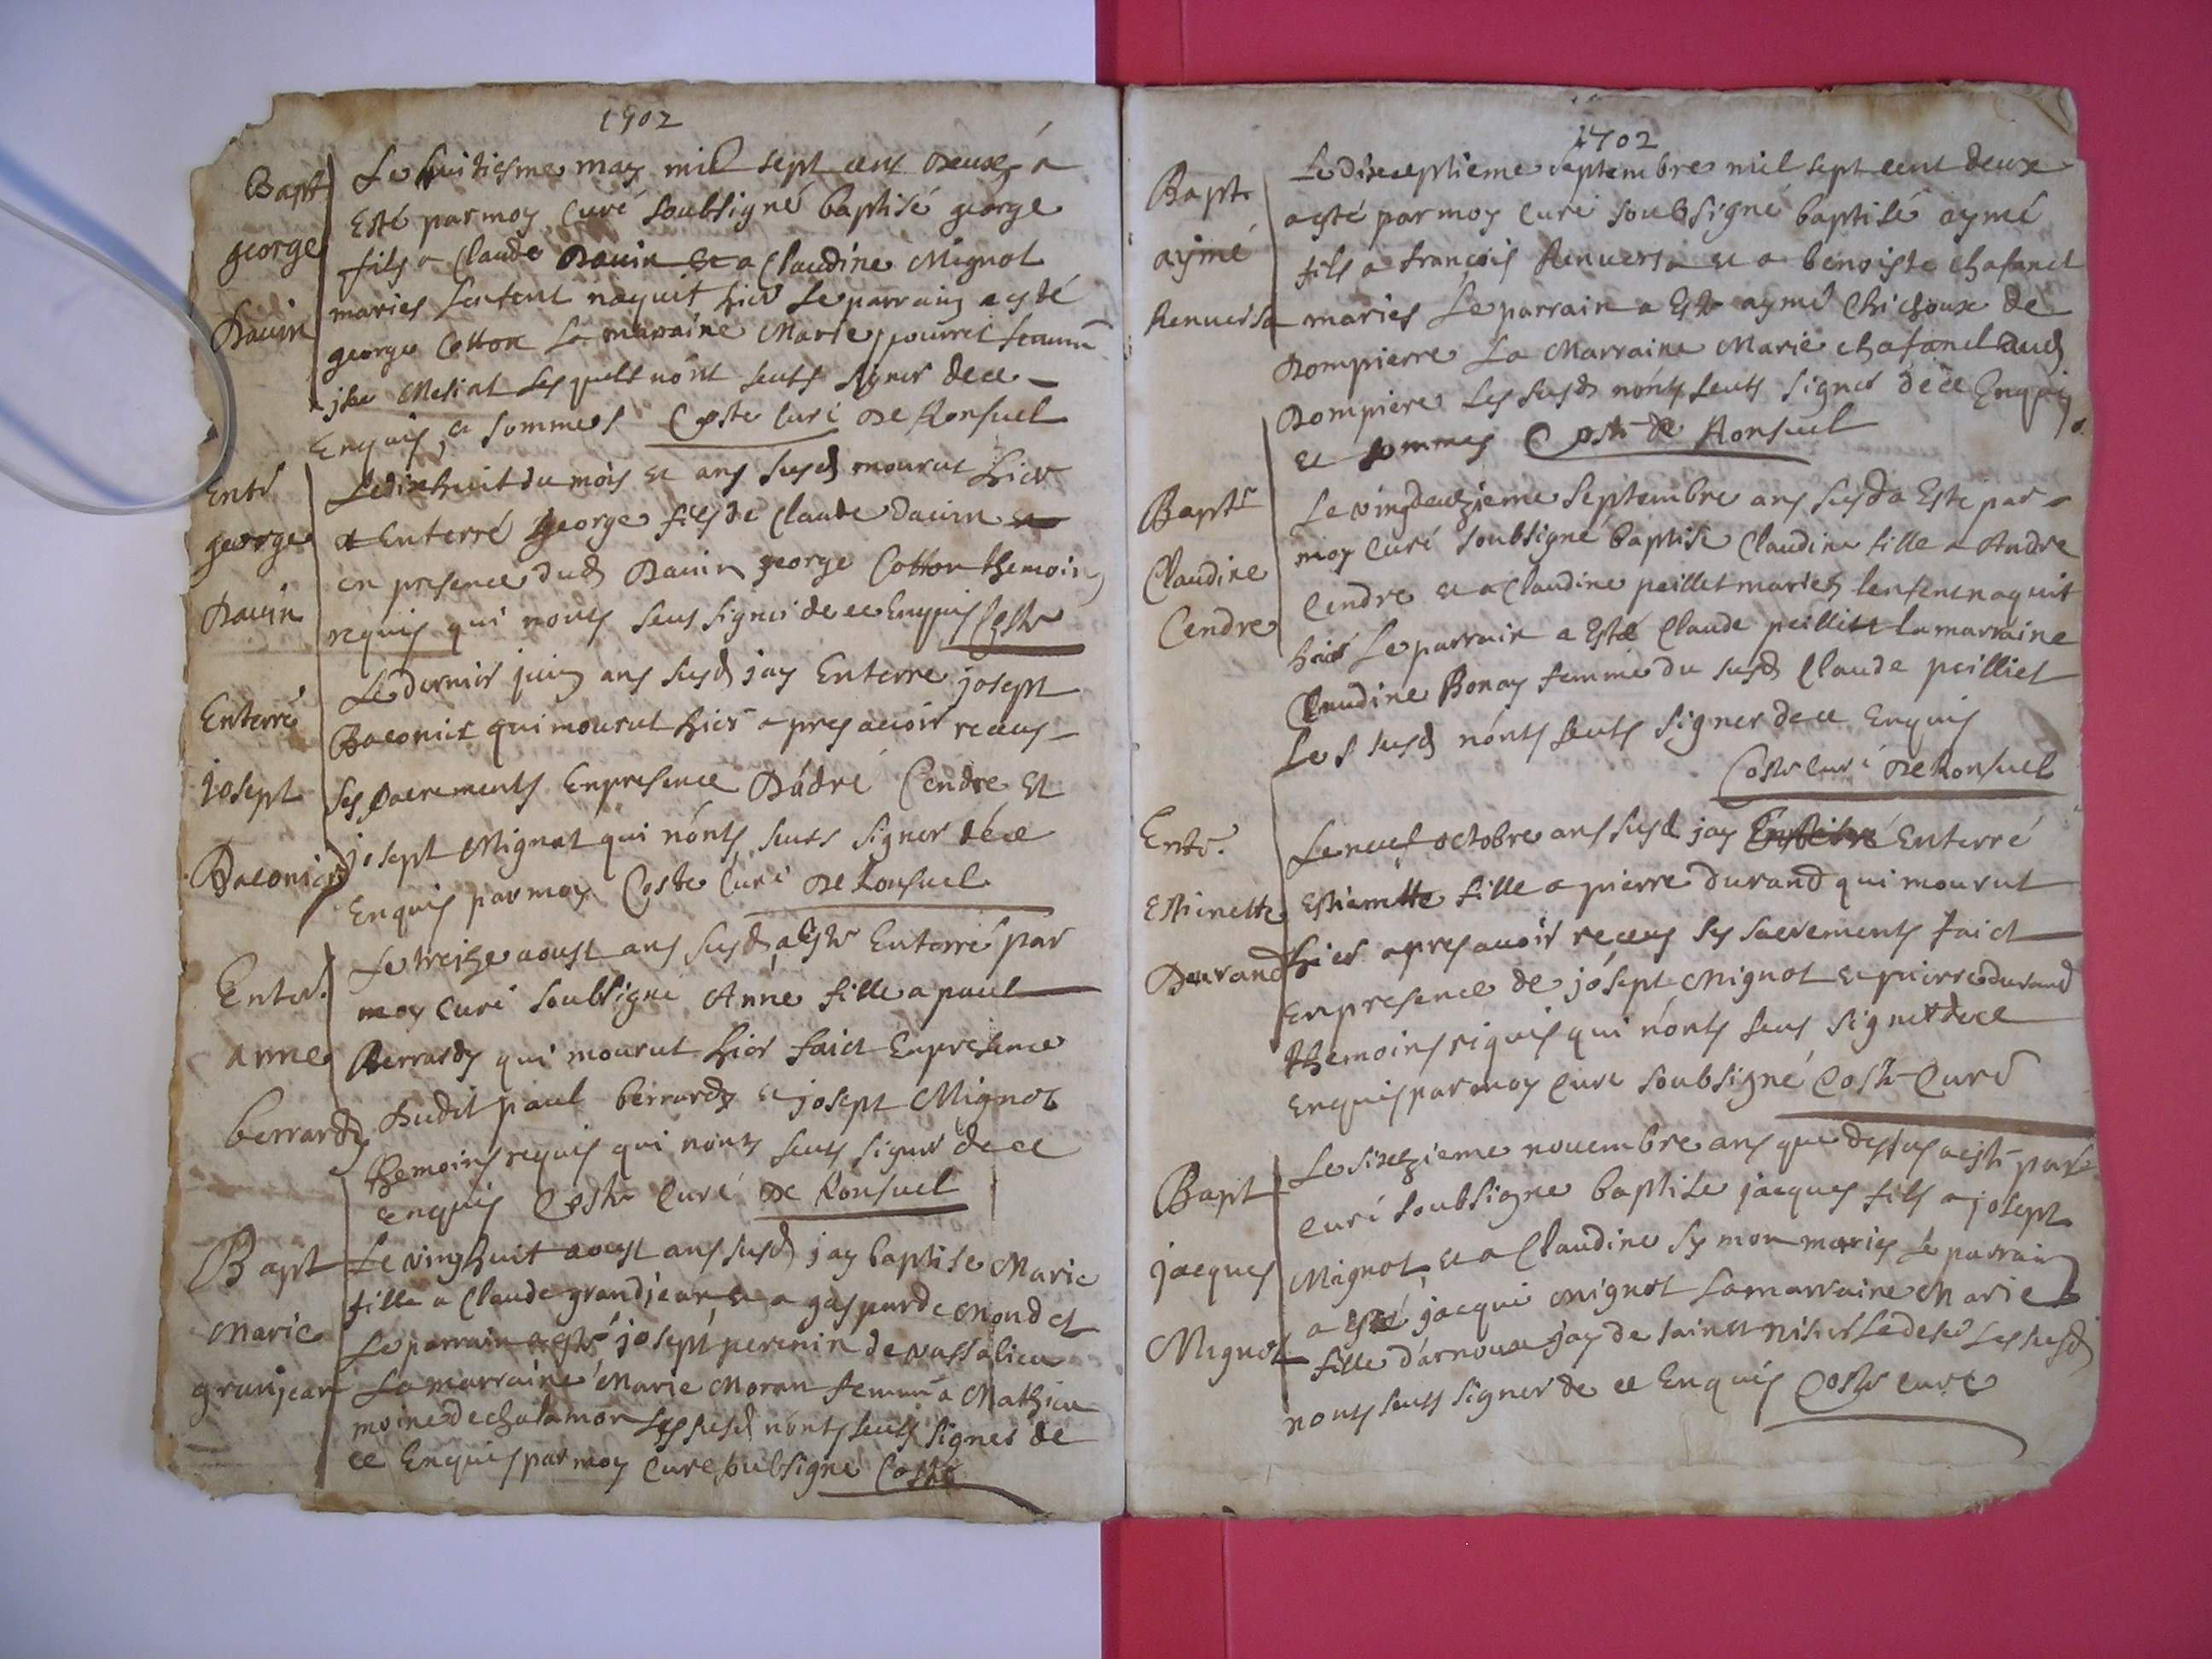 1702
Bapt
george
Dauin
Le huitiesme may mil sept cens deux a
Esté par moy Curé soubsigné baptisé george
fils a Claude Dauin et a Claudine Mignot
maries lenfent naquit hier Le parrain a esté
george Cotton La maraine Marie pourret femme
Mesiat Lesquels nont seuts signer de ce
Enquis et sommes Coste Curé De Ronsuel
Enter
george
Dauin
Le dixhuit du mois et ans susd mourut hier
Enterré george fils de Claude dauin
en presence dud Dauin george Cotton themoins
requis qui nonts seus signer de ce Enquis Coste
Enterré
josept
Baconier
Le dernier juin ans susd jay Enterre josept
Baconier qui mourut hier apres auoir receus
ses sacrements En presence Dádré Cendre Et
josept Mignot qui nónts seuts signer de ce
Enquis par moy Coste Curé De Ronsuel
Enter.
anne
berrardy
Le treize aoust ans susd a este Enterré par
moy Curé soubsigné Anne fille a paul
Berrardy qui mourut hier faict En presence
Dudit paul berrardy et josept Mignot
themoins requis qui nonts seuts signer de ce
Enquis Coste Curé De Ronsuel
Bapt
Marie
granjean
Le vinghuit aoust ans susd jay baptise Marie
fille a Claude grandjean et a gasparde Mondet
Le parrain a este josept perenin de vassalieu
La marraine Marie Moran femme a Mathieu
moine de chalamon Les susd nonts seuts signer de
ce Enquis par moy Curé soubsigné Coste
1702
Bapt
aymé
Renuersa
Le dixseptieme septembre mil sept cent deux
a esté par moy Curé soubsigné baptisé aymé
fils a francois Renuersa et a benoiste chafanel
maries Le parrain a Este aymé Chichoux de
Dompierre La Marraine Marie chafanel dud
Dompiere Les susd nonts seuts signer de ce Enquis
et sommes Coste De Ronsuel
Baptr
Claudine
Cendre
Le vingdeuxzieme Septembre ans susd a Este par
moy Curé soubsigné baptise Claudine fille a Andre
Cendre et a Claudine peillet maries lenfent naquit
hier Le parrain a Esté Claude peilliet La marraine
Claudine Bonay femme du susd Claude peilliet
Les susd nónts seuts signer de ce Enquis
Coste Curé De Ronsuel
Enter.
Estienette
Durand
Le neuf octobre ans susd jay Enterré
Estienette fille a pierre durand qui mourut
hier apres auoir receus ses sacrements faict
En presence de jósept Mignot et pierre durand
themoins riquis qui nónts seus signer de ce
Enquis par moy Curé soubsigné Coste Curé
Bapt
jacques
Mignot
Le sixzieme nouembre ans que dessus a esté par
Curé soubsigne baptise jacques fils a josept
Mignot et a Claudine Symon maries Le parrain
a esté jacque Mignot La marraine Marie
fille d'arnoux jay de sainct nisier Le desert Les susd
nonts seuts signer de ce Enquis Coste Curé